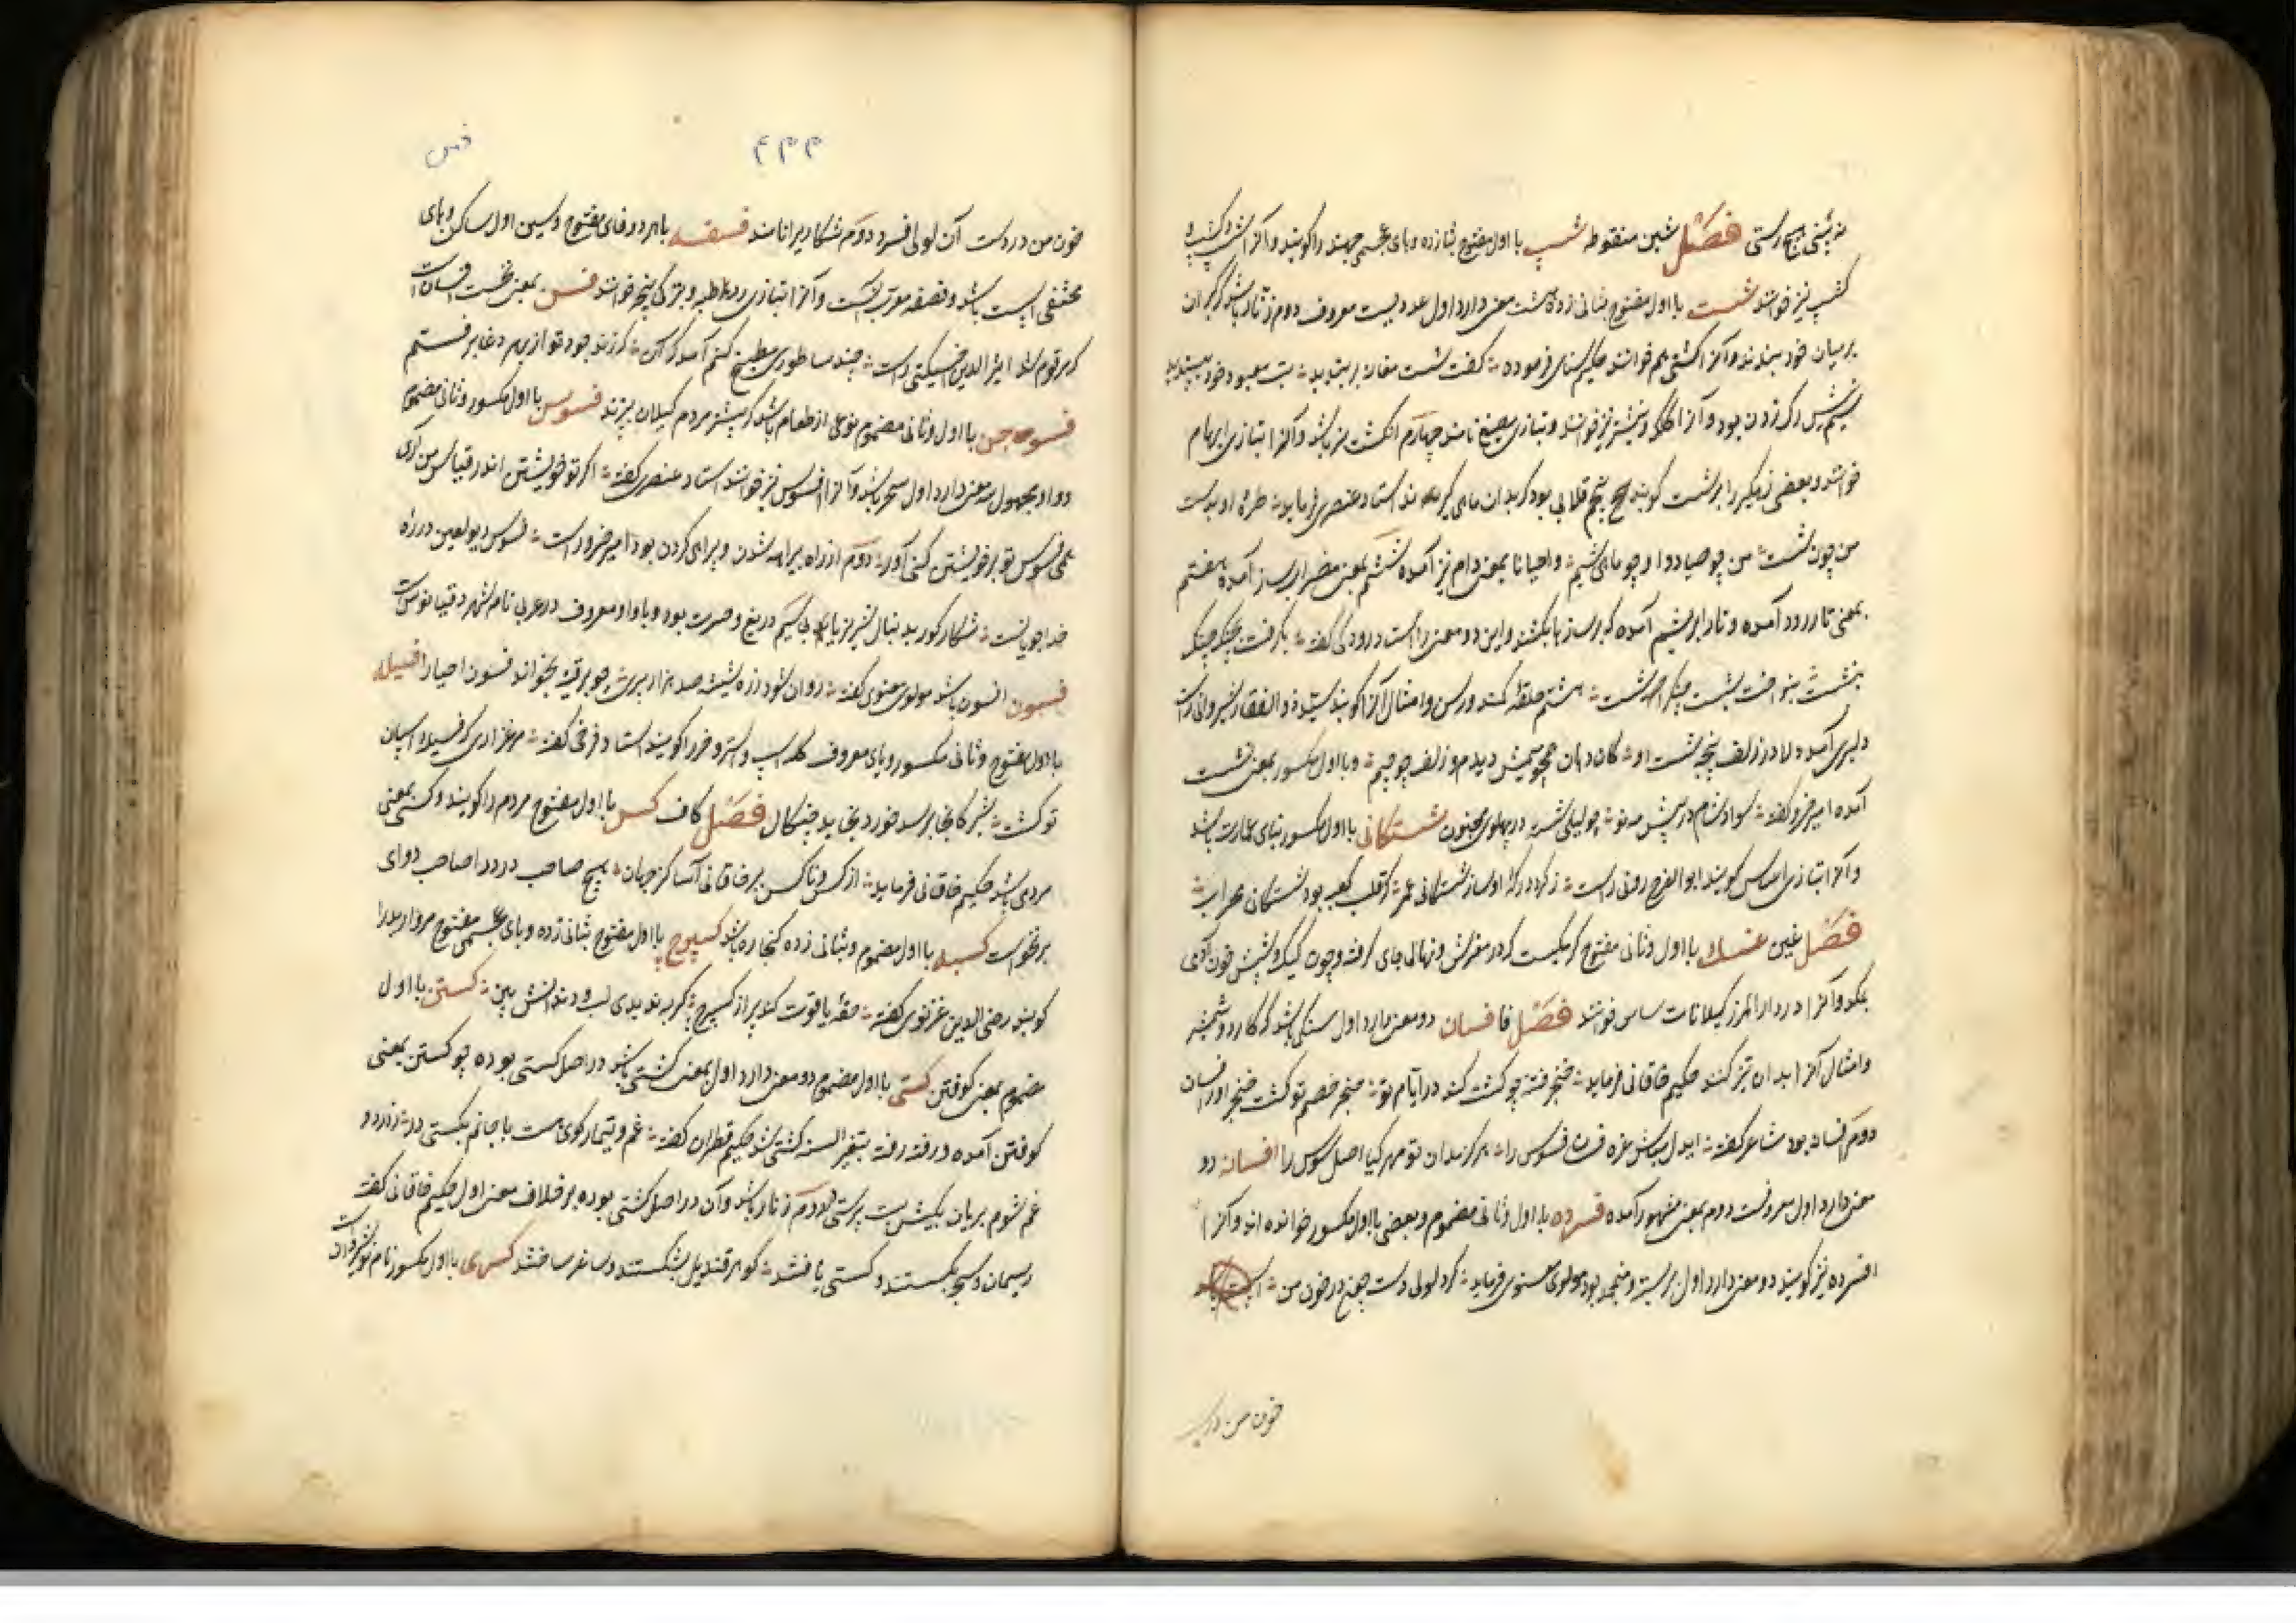 نه پشتی نه رستی فصل شین منقوطه شسپ با اول مفتوح بثانی زده و بای عجمی جهند را گویند و آنرا
کشسپ نیز خوانند شست با اول مفتوح بثانی زده هشت معنی دارد اول عددیست معروف دوم زنار باشد که گبران
بر میان خود ببندند و آنرا کشتی هم خوانند حکیم سنای فرموده گفت شست مغانه بر بندید بت معبود خود بپسندید
سیم نیش رگ زدن بود و آنرا کلک و نیشتر نیز خوانند و بتازی مبضع نامند چهارم انگشت نر باشد و آنرا بتازی ابهام
خوانند و بعضی زهگیر را نیز شست گویند پنجم قلابی بود که بدان ماهی گیرند استاد عنصری فرماید طره او بدست
من چون شست من چو صیاد و او چو ماهی شیم و احیانا بمعنی دام نیز آمده ششم بمعنی مضراب ساز آمده هفتم
بمعنی تار رود آمده و تار ابریشم آمده که بر سازها بکشند و این دو معنی راست رودکی گفته بگرفت بچنگ چنگ
بنشست بنواخت بشست چنگ را شست هشتم حلقه کمند و رسن و امثال آنرا گویند سید ذوالفقار شیروانی راست
دلبری آمد در زلف پنجه شست او کان دهان همچو میمش دیدم و زلف چو جیم و با اول مکسور بمعنی نشست
آمده امیر خسرو گفته سواد شام در پیش مه نو چو لیلی شسته در پهلوی مجنون شستگانی با اول مکسور بنای عمارت باشد
و آنرا بتازی اساس گویند ابوالفرج رونی راست
فصل غین غسک با اول و ثانی مفتوح کرمیست که در مفرش و نهالی جای گرفته و چون کیک و شپش خون آدمی
بمکد و آنرا در دارالمرز گیلانات ساس خوانند فصل فا فسان دو معنی دارد اول سنگی باشد که کارد و شمشیر
و امثال آنرا بدان تیز کنند حکیم خاقانی فرماید خنجر فتنه چو گشت کند در ایام تو حنجر خصم تو گشت خنجر او را فسان
دوم افسانه بود شاعر گفته افسانه دو
معنی دارد اول معروفست دوم بمعنی مشهور آمده فسرده با اول و ثانی مضموم و بعضی با اول مکسور خوانده اند و آنرا
افسرده نیز گویند دو معنی دارد اول بر بسته و منجمد بود مولوی معنوی فرماید کرد لولی دست چون در خون من
خون من در
۴۳۳
فس
خون من در دست آن لولی فسرد دوم شکار دیرا نامند فسفسه با هر دو فای مفتوح و سین اول ساکن و های
مختفی اسپست باشد و فصفصه معرب آنست و آنرا بتازی رطبه و بترکی یونجه خوانند فسن بمعنی نخست فسان است
که مرقوم شد اثیر الدین اخسیکتی راست
فسوجن با اول و ثانی مضموم نوعی از طعام باشد که بیشتر مردم گیلان پزند فسوس با اول مکسور و ثانی مضموم
و واو مجهول سه معنی دارد اول سخر باشد و آنرا افسوس نیز خوانند استاد عنصری گفته اگر تو خویشتن اندر قیاس من آری
همی فسوس تو بر خویشتن کنی آور دوم از راه بیراهه شدن و بیراهی کردن بود امیر خسرو راست فسوس دیو لعین در ره
خداجویانست شکار گور بدنبال شیر سیم دریغ و حسرت بود و با واو معروف در عربی نام شهر دقیانوس است
فسون افسون باشد مولوی معنوی گفته روان شود ز ره سینه صد هزار پری چو بر قنینه بخواند فسون احیا را فسیله
با اول مفتوح و ثانی مکسور و یای معروف گله اسپ و استر و خر را گویند استاد فرخی گفته مرغزاری که فسیله اسپان
تو گشت شیر کانجا برسد خورد بخاید چنگال فصل کاف کس با اول مفتوح مردم را گویند و کسی بمعنی
مردی باشد حکیم خاقانی فرماید از کس و ناکس ببر خاقانی آسا کز جهان هیچ صاحب درد را صاحب دوای
برنخواست کسبه با اول مضموم و بثانی زده کنجاره باشد کسپرج با اول مفتوح بثانی زده و بای عجمی مفتوح مروارید را
گویند رضی الدین غزنوی گفته حقه یاقوت کند پر از کسپرج گر به ندیدی لب و دندانش بین کستن با اول
مضموم بمعنی کوفتن کستی با اول مضموم دو معنی دارد اول بمعنی کشتی باشد در اصل کستی بوده چو کستن بمعنی
کوفتن آمده و رفته رفته بتغییر السنه کشتی شد حکیم قطران گفته غم و تیمار کوی هست با جانم بکستی در
دوم زنار باشد و آن در اصل کشتی بوده بر خلاف معنی اول حکیم خاقانی گفته
ریسمان سبحه بگسستند و کستی بافتند گوهر قندیل بشکستند و ساغر ساختند کسری با اول مکسور نام نوشیروان است